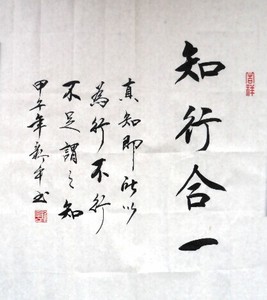 知行合一
真知即所以
為行不行
不足謂之知
甲午年